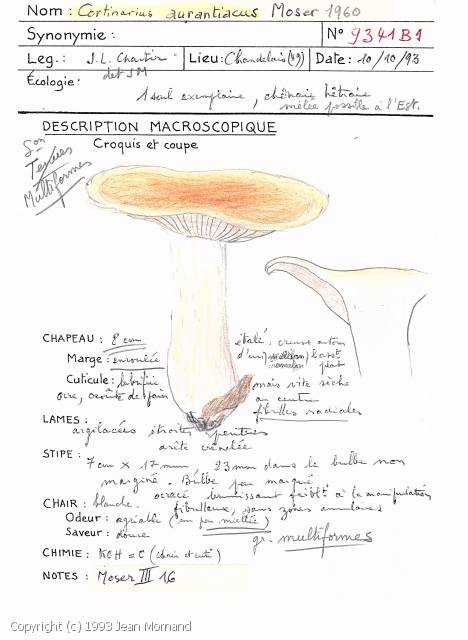 Nom : Cortinarius aurantiacus Moser 1960
Synonymie : N° 9341B1
Leg. : J.L. Chartier Lieu: Chandelais (49) Date : 10/10/93
det JM
Écologie :
1 seul exemplaire, chênaie hêtraie
mêlée possible à l'Est.
DESCRIPTION MACROSCOPIQUE
Croquis et coupe
Son
Tenues
Multiformes
CHAPEAU : 8 cm étalé, creusé autour
Marge : enroulée d'un large plat
Cuticule : lubrifié mais vite sèche
ocre, croûte de pain au centre
fibrilles radiales
LAMES :
argilacées étroites
arête crénelée
STIPE :
7 cm x 17 mm, 23 mm dans le bulbe non
marginé. Bulbe peu marqué
ocracé brunissant faiblt à la manipulation
CHAIR : blanche. fibrilleux, sans zones annulaires
Odeur : agréable (un peu miellée)
Saveur : douce gr. multiformes
CHIMIE : KOH = 0 (chair et cuti)
NOTES : Moser III 16
Copyright (c) 1993 Jean Mornand